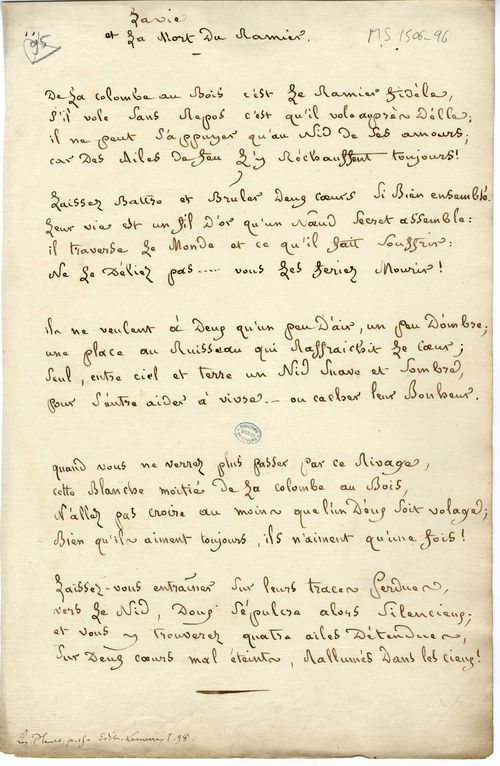 La vie
et La Mort Du Ramier.
95
MS 1506-96
De La colombe au Bois c'est Le Ramier fidèle,
S'il vole Sans Repos c'est qu'il vole après D'élle;
il ne peut S'appuyer qu'au Nid de Ses amours;
car Des Ailes de feu L'y Réchauffent toujours!
Laissez Battre et Bruler Deux cœurs Si Bien ensemble.
Leur vie est un fil D'or qu'un Nœud Secret assemble:
il traverse Le Monde et ce qu'il fait Souffrir:
Ne Le Déliez pas..... vous Les feriez Mourir!
ils ne veulent à Deux qu'un peu D'air, un peu D'ombre;
une place au Ruisseau qui Raffraichit Le Cœur;
Seul, entre ciel et terre un Nid Suave et Sombre,
pour S'entre aider à vivre — ou cacher leur Bonheur.
quand vous ne verrez plus passer par ce Rivage,
cette Blanche moitié de La colombe au Bois,
N'allez pas croire au moins que l'un D'eux Soit volage;
Bien qu'ils aiment toujours, ils n'aiment qu'une fois!
Laissez-vous entraîner Sur leurs traces Perdues,
vers Le Nid, Doux Sépulcre alors Silencieux;
et vous y trouverez quatre ailes Détendues,
Sur Deux cœurs mal éteints, Rallumés Dans les cieux!
Les Pleurs, Edit. Lemerre, t. 98.